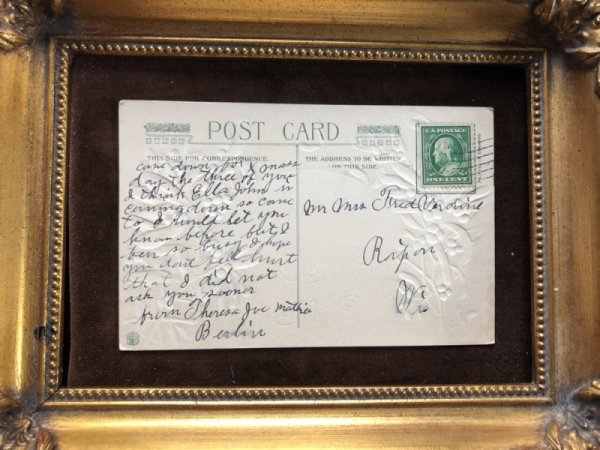 POST CARD
THIS SIDE FOR CORRESPONDENCE.
THE ADDRESS TO BE WRITTEN
ON THIS SIDE.
U.S. POSTAGE
ONE CENT
come down for X mass
day the three of you
I think Ella John is
coming down so come
to I would let you
know before but I
ben so busy I hope
you dont feel hurt
that I did not
ask you sooner
from Theresa Joe Mathies
Berlin
Mr Mrs Fred
Ripon
Wis